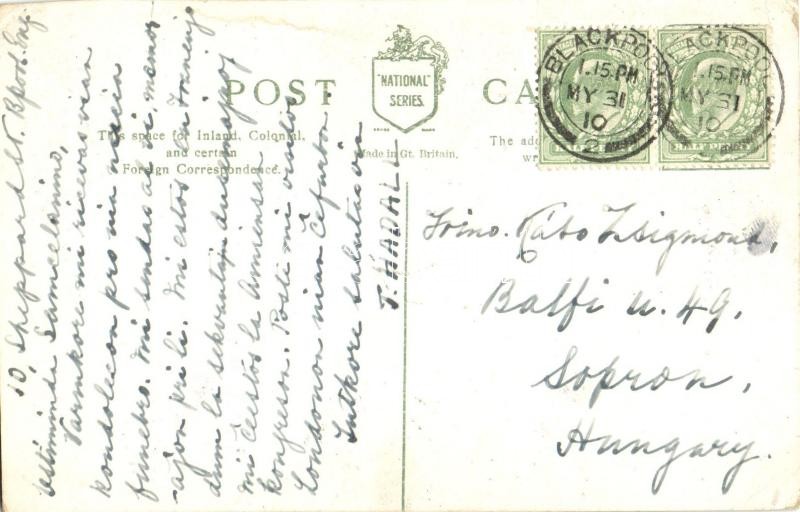 10, Sheppard St. Bpool. Eng.
Estiminda Samcelanino,
Varmkore mi ricevas vian
kondolecon pro nia nacia
funebro. Mi sendas al vi, memor
ajon pri li. Mi estos en trainingo
dum la sekvantajn du semajnoj
mi ĉeestos la Amiensan
kongreson. Poste mi venos
Londonon nian ĉefurbon
Tutkore salutas vin
T. HADALL
POST CA
"NATIONAL"
SERIES.
This space for Inland, Colonial,
and certain
Foreign Correspondence.
Made in Gt. Britain.
The add
wr
BLACKPOOL
1.15.PM
MY 31
10
2
BLACKPOOL
1.15.PM
MY 31
10
HALF PENNY
Frino. Kato Zsigmond,
Balfi u. 49,
Sopron,
Hungary.